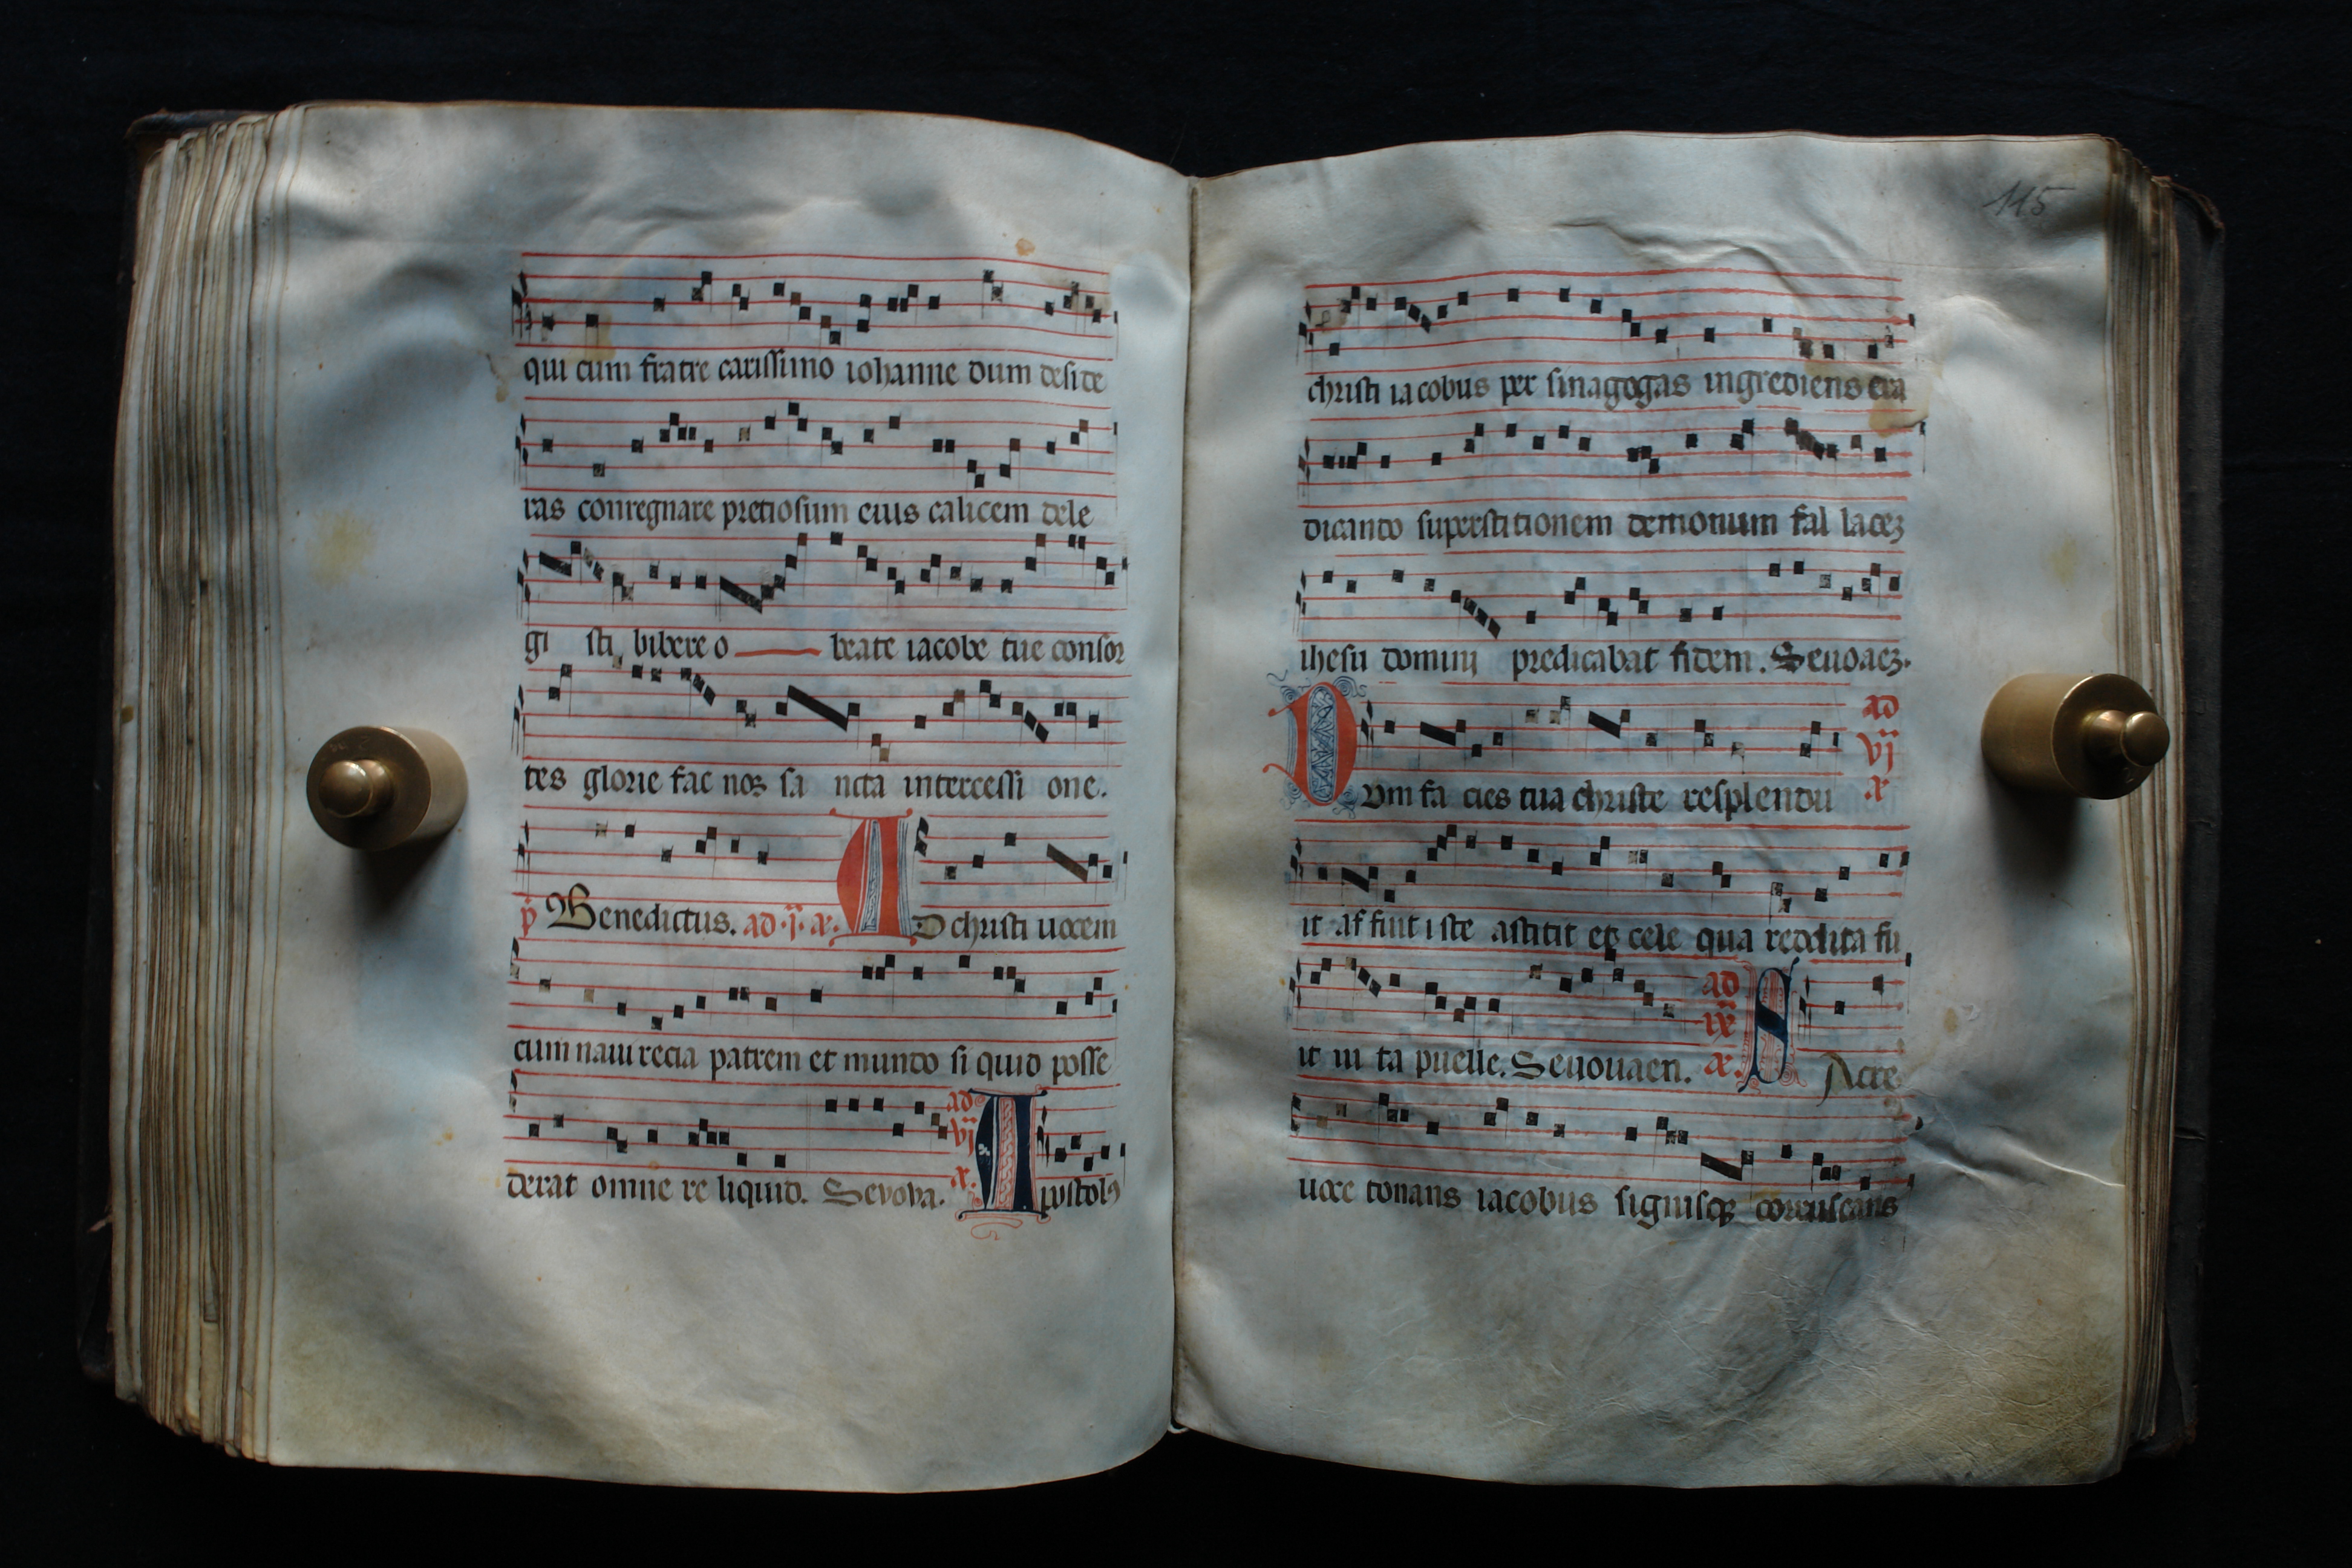 qui cum fratre carissimo iohanne dum deside
ras conregnare pretiosum eius calicem dele
gi sti bibere o beate iacobe tue consor
tes glorie fac nos sa ncta intercessi one.
p Benedictus. ad .j. a. A D christi uocem
cum naui recia patrem et mundo si quid posse
derat omne re liquid. Sevova. ad vj a. A postolꝯ
115
christi ia cobus per sinagogas ingrediens era
dicando superstitionem demonum fal lacez
ihesu domini predicabat fidem. Seuoaez.
D vm fa cies tua christe resplendu ad vj a
it af fuit iste astitit et cele qua reddita fu
it ui ta puelle. Seuouaen. ad ix a. S Acre
uoce tonans iacobus signisqꝫ coruscans